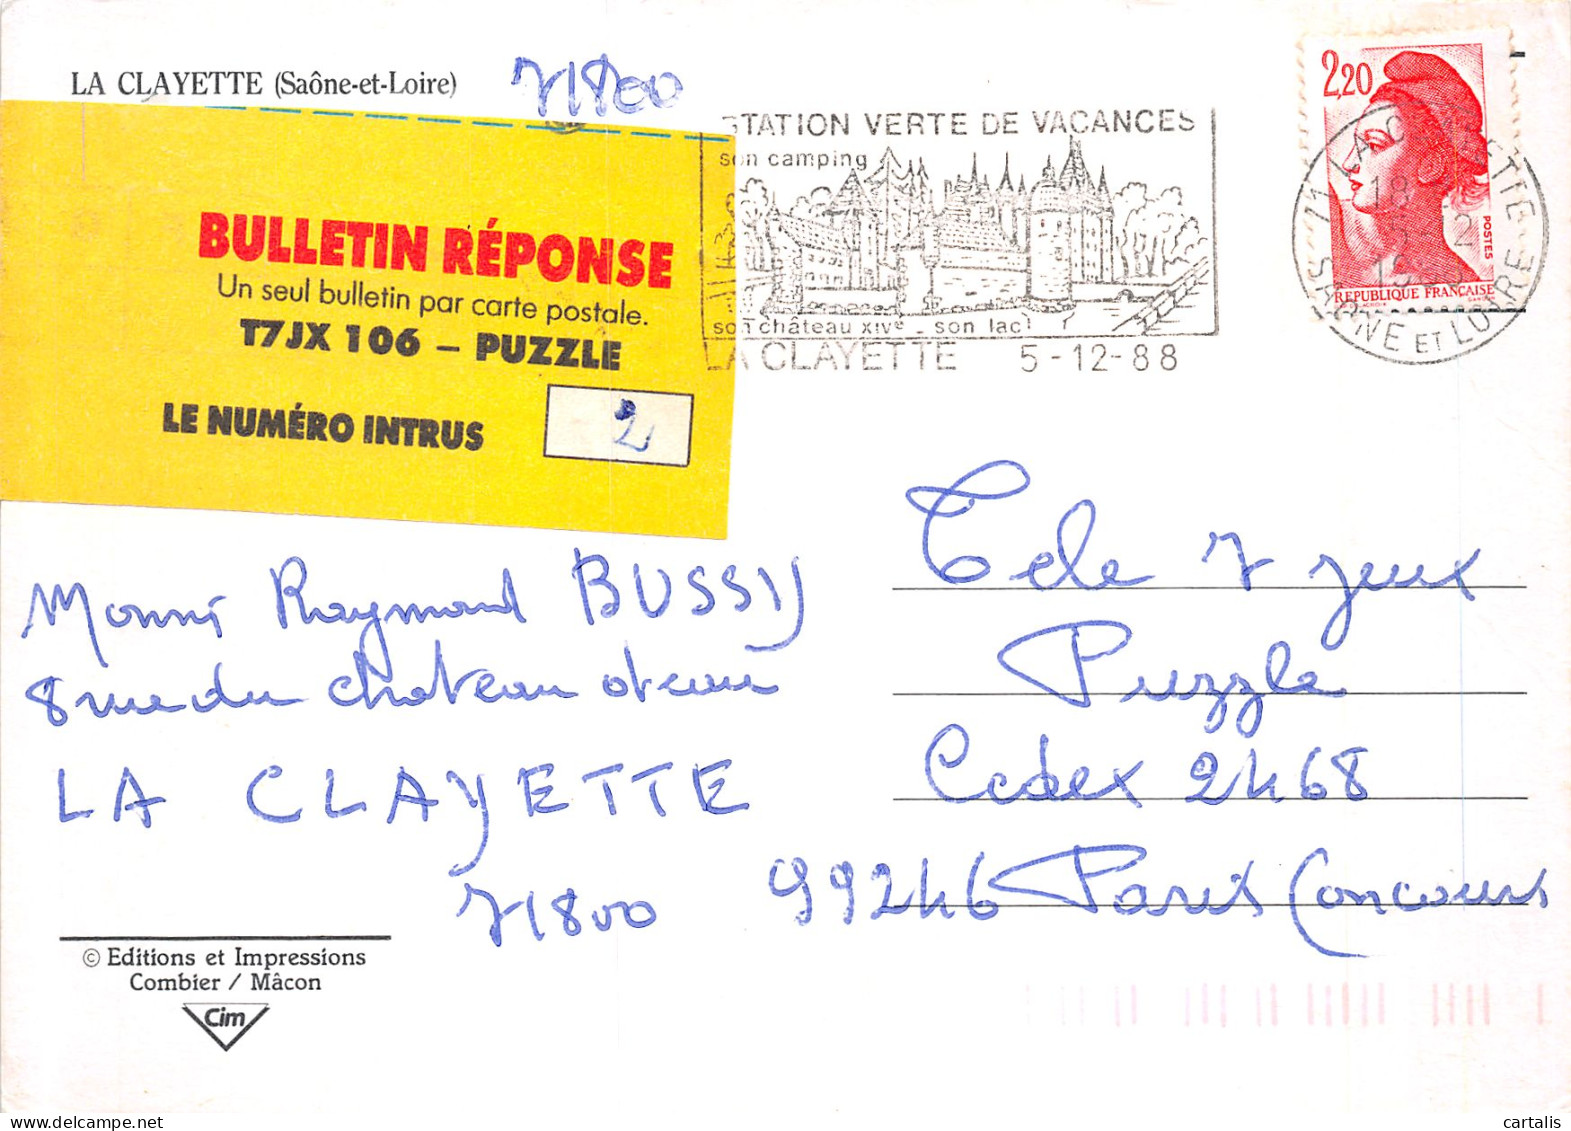 LA CLAYETTE (Saône-et-Loire)
71800
BULLETIN RÉPONSE
Un seul bulletin par carte postale.
T7JX 106 – PUZZLE
LE NUMÉRO INTRUS
2
STATION VERTE DE VACANCES
son camping
son château XIVe - son lac
LA CLAYETTE 5-12-88
2,20
POSTES
REPUBLIQUE FRANÇAISE
71 LA CLAYETTE
18
SAONE ET LOIRE
Raymond BUSSY
8 rue du chateau
LA CLAYETTE
71800
Tele 7 jeux
Puzzle
Cedex 2468
99246 Paris Concours
© Editions et Impressions
Combier / Mâcon
Cim
cartalis